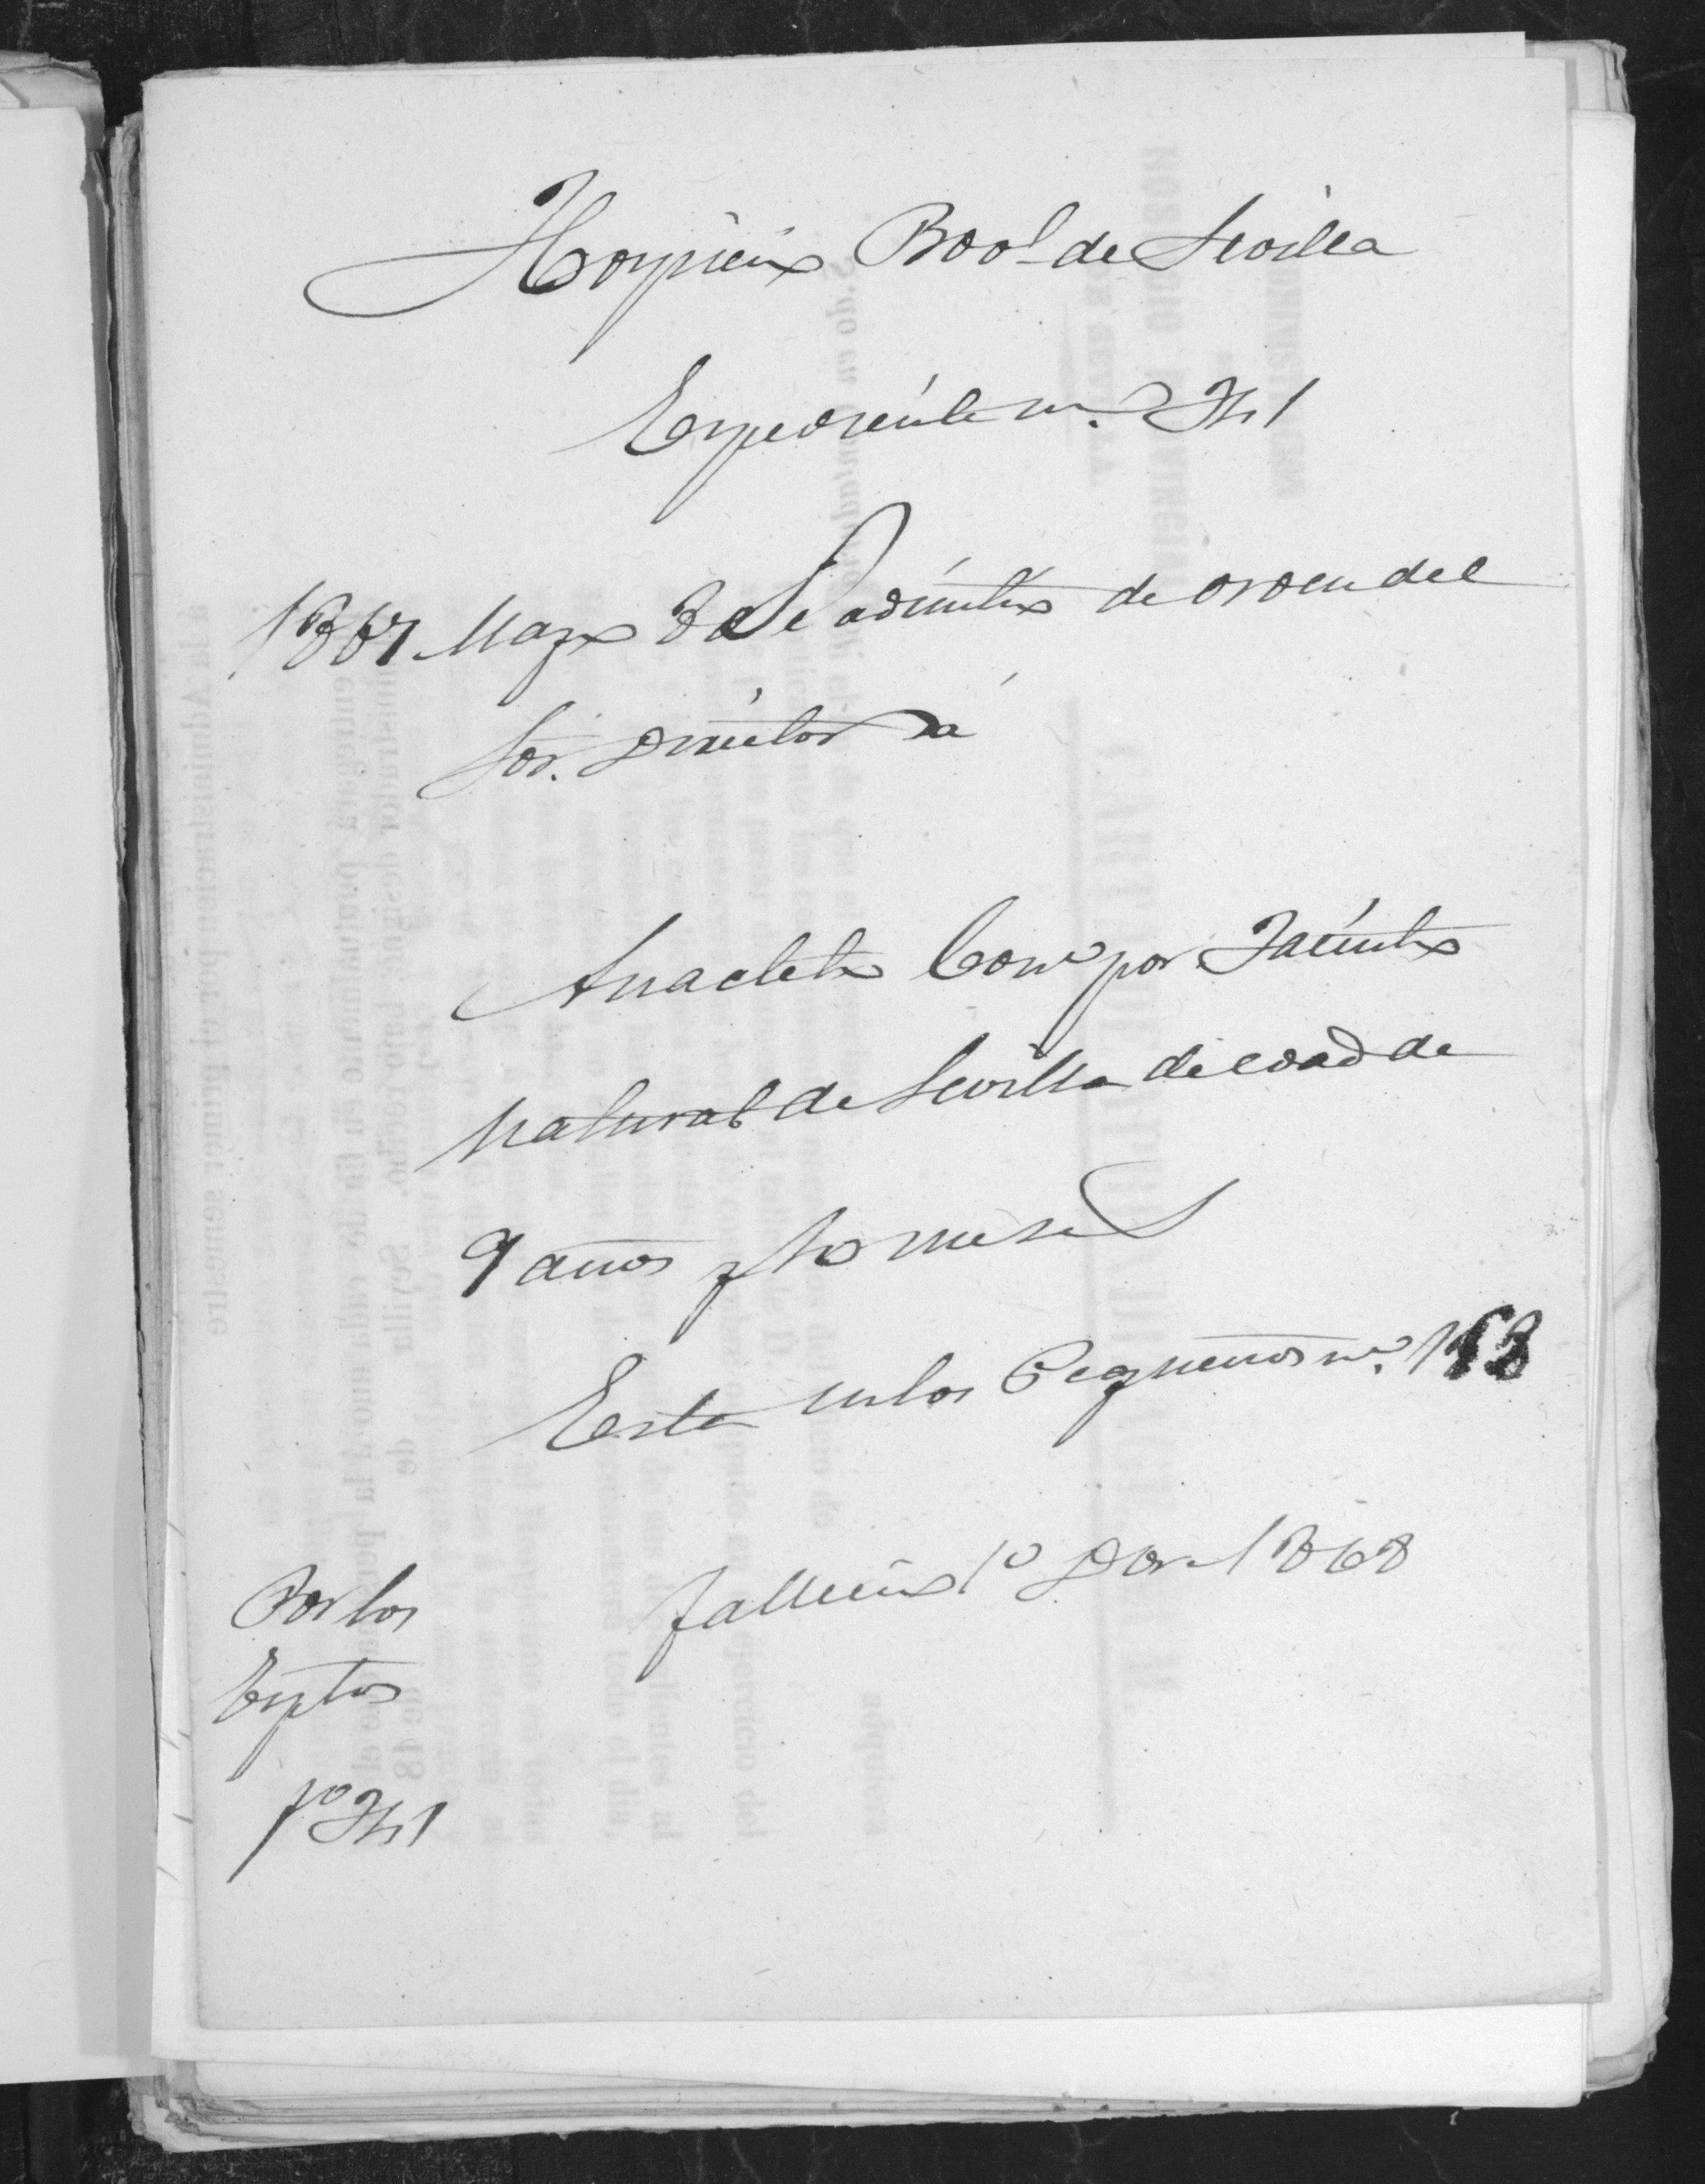 Hospicio Prov.l de Sevilla
Expediente n.o 341
1867 Mayo 30 Se admitio de orden del
Sor. Director á
Anacleto Con.o por Jacinto
natural de Sevilla de edad de
9 años y 10 meses
Esta en los Pequeños n.o 1
Fallecio 1.o Dbre 1868
Por los
Exptos
f.o 341